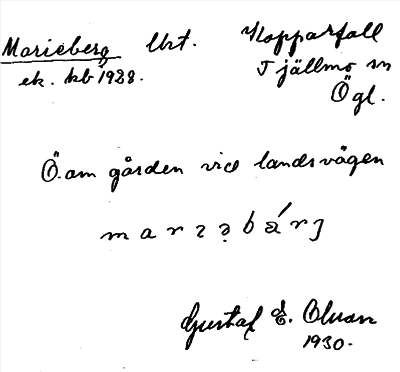 Marieberg lht. Kopparfall
ek. kb 1928. Tjällmo sn
Ögl.
Ö. om gården vid landsvägen
Gustaf E.
1930.